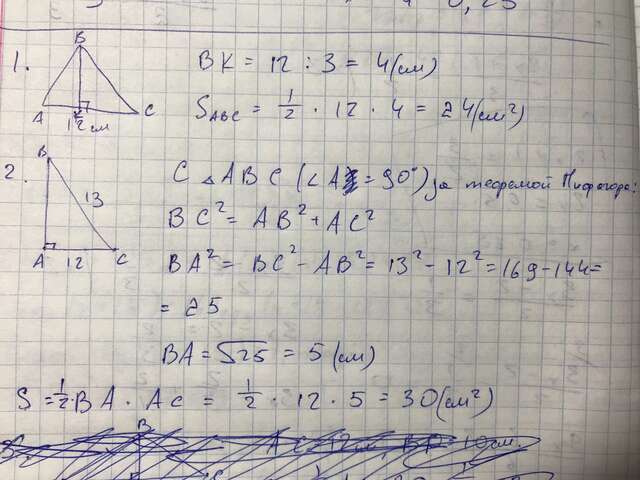 0,25
1.
B
A
C
12 см
BK = 12 : 3 = 4(см)
S ABC = 1/2 · 12 · 4 = 24(см²)
2.
B
13
A 12 C
С △ABC (∠A = 90°) за теоремой Пифагора:
BC² = AB² + AC²
BA² = BC² - AB² = 13² - 12² = 169 - 144 =
= 25
BA = √25 = 5 (см)
S = 1/2 · BA · AC = 1/2 · 12 · 5 = 30(см²)
B